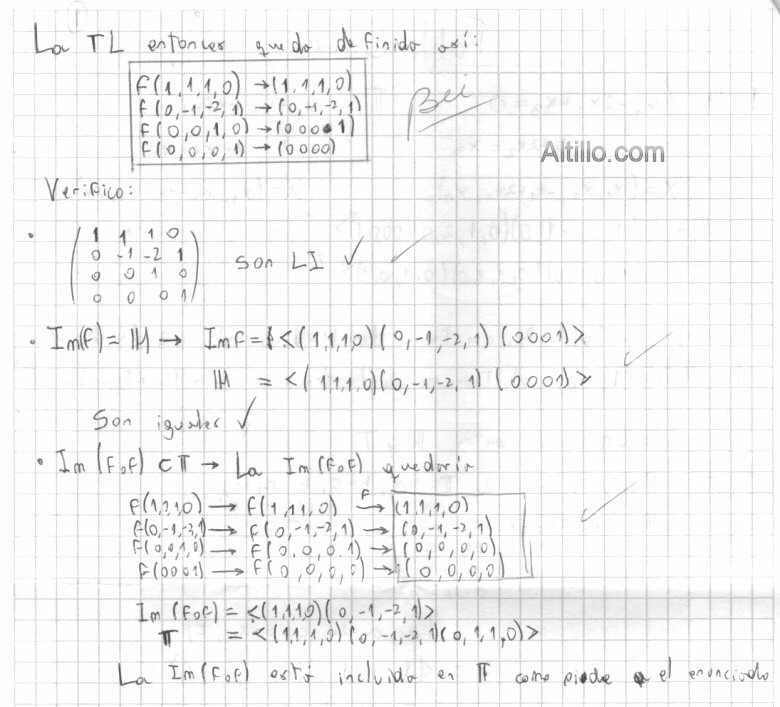 La TL entonces queda definida así:
f(1,1,1,0) → (1,1,1,0)
f(0,-1,-2,1) → (0,-1,-2,1)
f(0,0,1,0) → (0 0 0 1)
f(0,0,0,1) → (0 0 0 0)
Altillo.com
Verifico:
• 1 1 1 0
0 -1 -2 1
0 0 1 0
0 0 0 1
son LI ✓
• Im(f) = IH → Im f = <(1,1,1,0)(0,-1,-2,1)(0001)>
IH = <(1,1,1,0)(0,-1,-2,1)(0001)>
Son iguales ✓
• Im(fof) ⊂ π → La Im(fof) quedaría
f(1,1,1,0) → f(1,1,1,0) →F (1,1,1,0)
f(0,-1,-2,1) → f(0,-1,-2,1) → (0,-1,-2,1)
f(0,0,1,0) → f(0,0,0,1) → (0,0,0,0)
f(0001) → f(0,0,0,0) → (0,0,0,0)
Im(fof) = <(1,1,1,0)(0,-1,-2,1)>
π = <(1,1,1,0)(0,-1,-2,1)(0,1,1,0)>
La Im(fof) está incluida en π como pide el enunciado